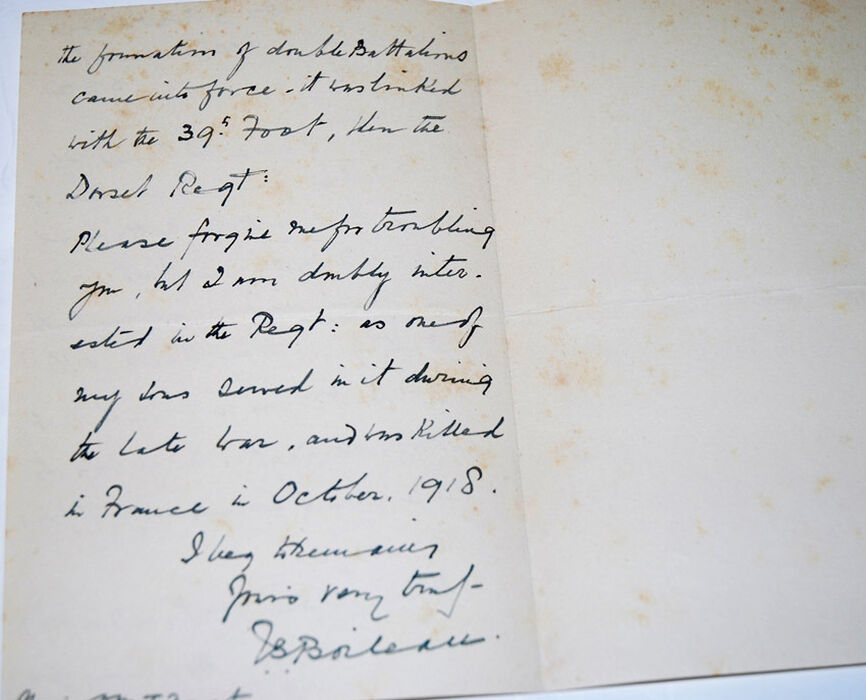 the formation of double Battalions
came into force - it was linked
with the 39th Foot, then the
Dorset Regt:
Please forgive me for troubling
you, but I am doubly inter-
ested in the Regt: as one of
my sons served in it during
the late War, and was killed
in France in October, 1918.
I beg to remain
Yours very truly
Boileau.